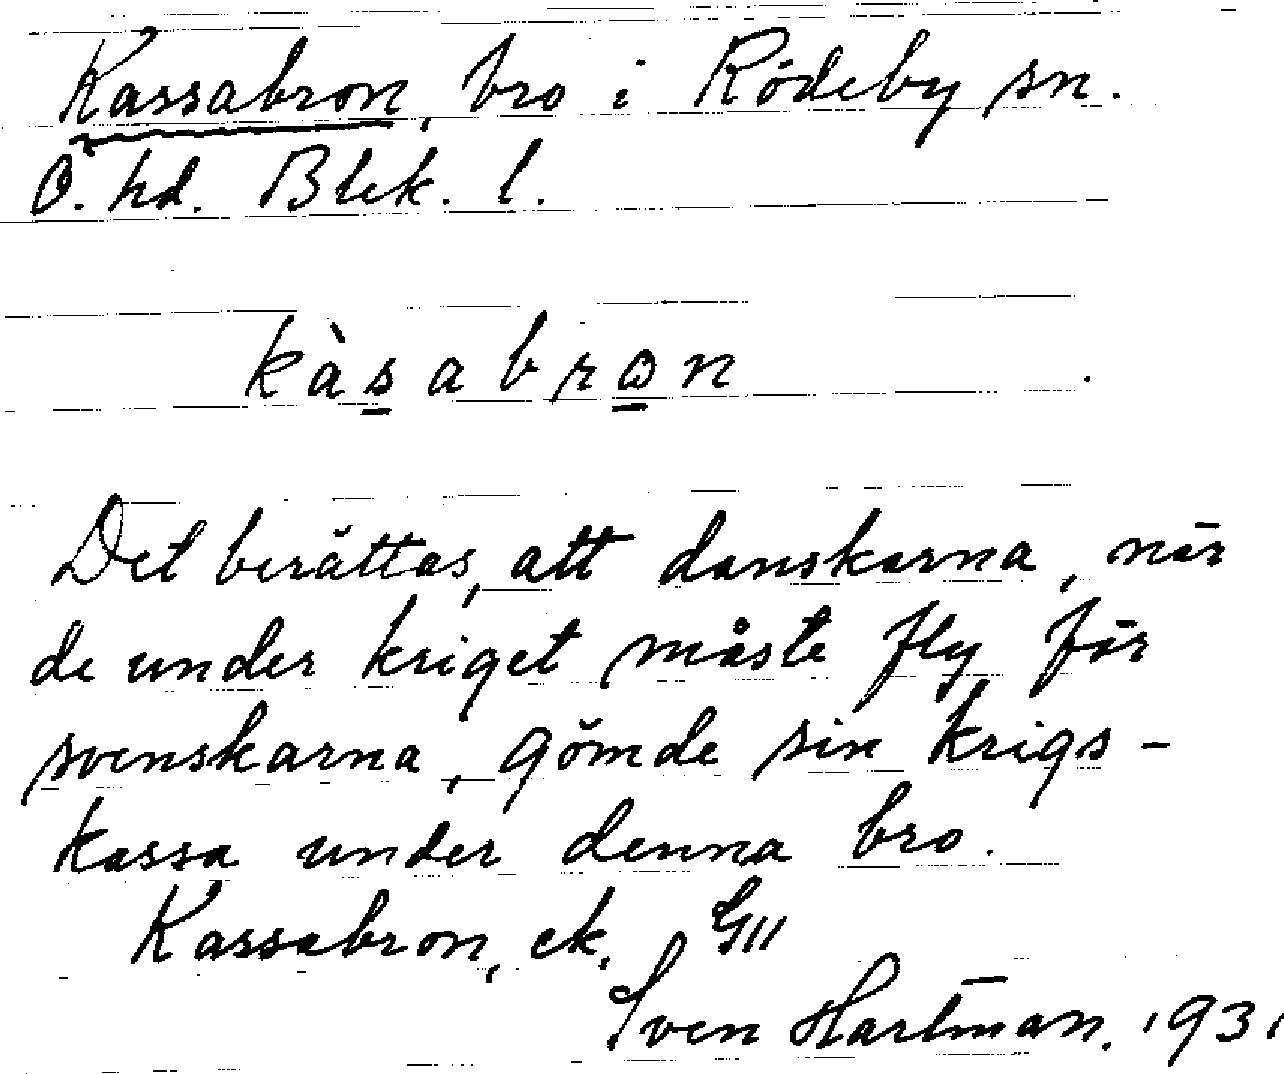 Kassabron, bro i Rödeby sn.
Ö. hd. Blek. l.
kàsabrωn
Det berättas, att danskarna, när
de under kriget måste fly för
svenskarna, gömde sin krigs-
kassa under denna bro.
Kassabron, ek. GII
Sven Hartman. 1931